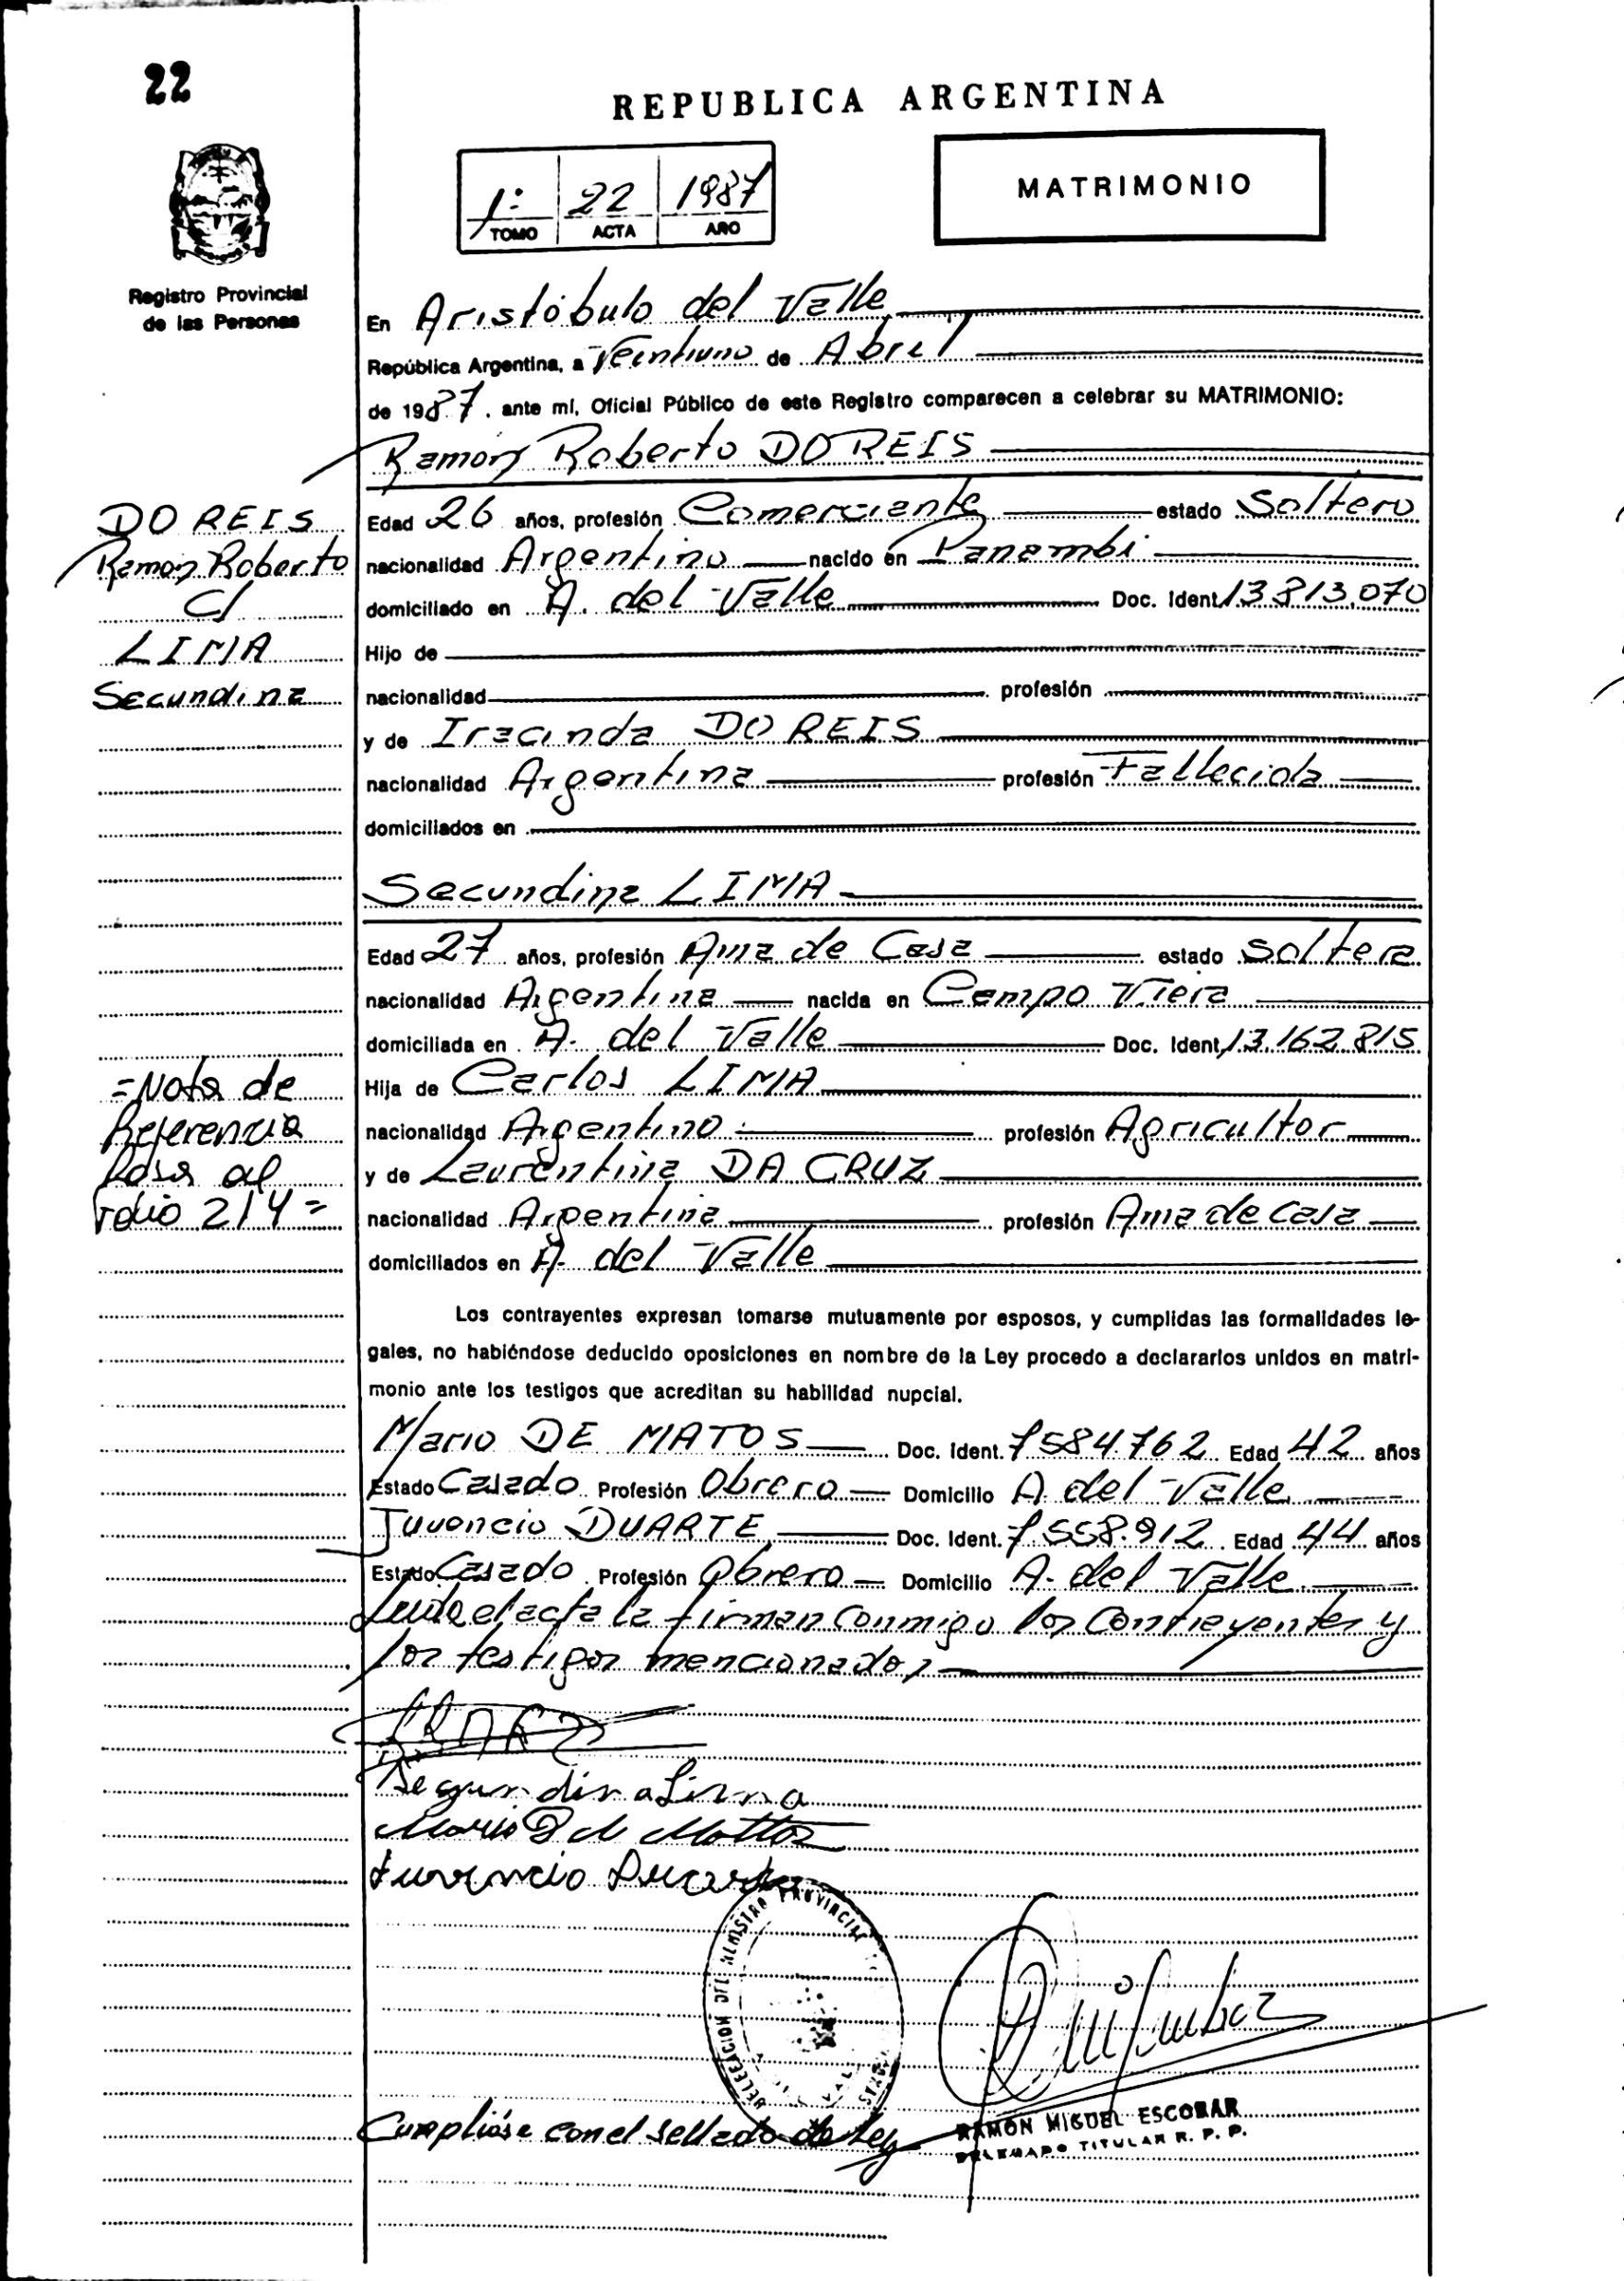 22
REPUBLICA ARGENTINA
1: 22 1987
TOMO ACTA AÑO
MATRIMONIO
Registro Provincial
de las Personas
En Aristóbulo del Valle
República Argentina, a Veintiuno de Abril
de 1987. ante mí, Oficial Público de este Registro comparecen a celebrar su MATRIMONIO:
Ramon Roberto DO REIS
DO REIS
Ramon Roberto
C/
LIMA
Secundina
Edad 26 años, profesión Comerciante estado Soltero
nacionalidad Argentino nacido en Panambi
domiciliado en A. del Valle Doc. Ident. 13.813.070
Hijo de
nacionalidad profesión
y de Iracinda DO REIS
nacionalidad Argentina profesión Fallecida
domiciliados en
Secundina LIMA
Edad 27 años, profesión Ama de Casa estado Soltera
nacionalidad Argentina nacida en Campo Viera
domiciliada en A. del Valle Doc. Ident. 13.162.815
Hija de Carlos LIMA
nacionalidad Argentino profesión Agricultor
y de Laurentina DA CRUZ
nacionalidad Argentina profesión Ama de Casa
domiciliados en A. del Valle
=Nota de
Referencia
Pasa al
Folio 214=
Los contrayentes expresan tomarse mutuamente por esposos, y cumplidas las formalidades le-
gales, no habiéndose deducido oposiciones en nombre de la Ley procedo a declararlos unidos en matri-
monio ante los testigos que acreditan su habilidad nupcial.
Mario DE MATOS Doc. Ident. 7584.762 Edad 42 años
Estado Casado Profesión Obrero Domicilio A. del Valle
Juvencio DUARTE Doc. Ident. 7.558.912 Edad 44 años
Estado Casado Profesión Obrero Domicilio A. del Valle
Leida el acta la firman conmigo los contrayentes y
los testigos mencionados
Segundina Lima
Mario D Mattos
Juvencio Duarte
DELEGACION DEL REGISTRO PROVINCIAL
Cumplióse con el sellado de Ley
RAMON MIGUEL ESCOBAR
DELEGADO TITULAR R. P. P.